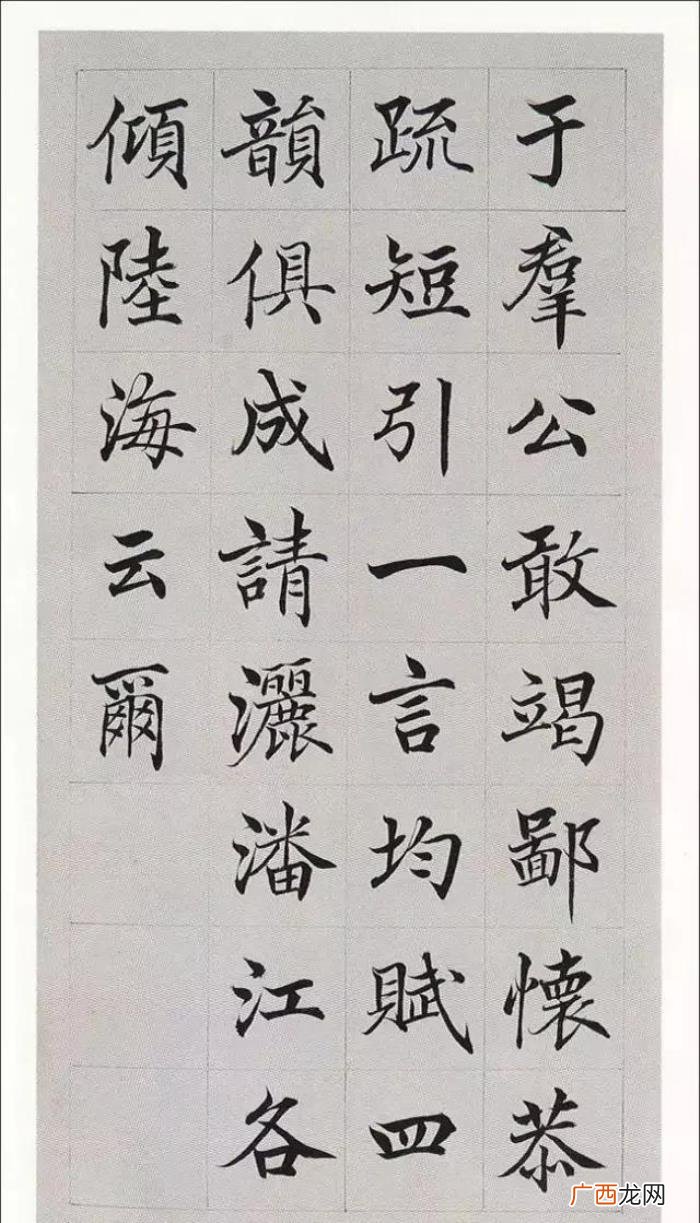 于羣公敢竭鄙懷恭
疏短引一言均賦四
韻俱成請灑潘江各
傾陸海云爾
广西龙网